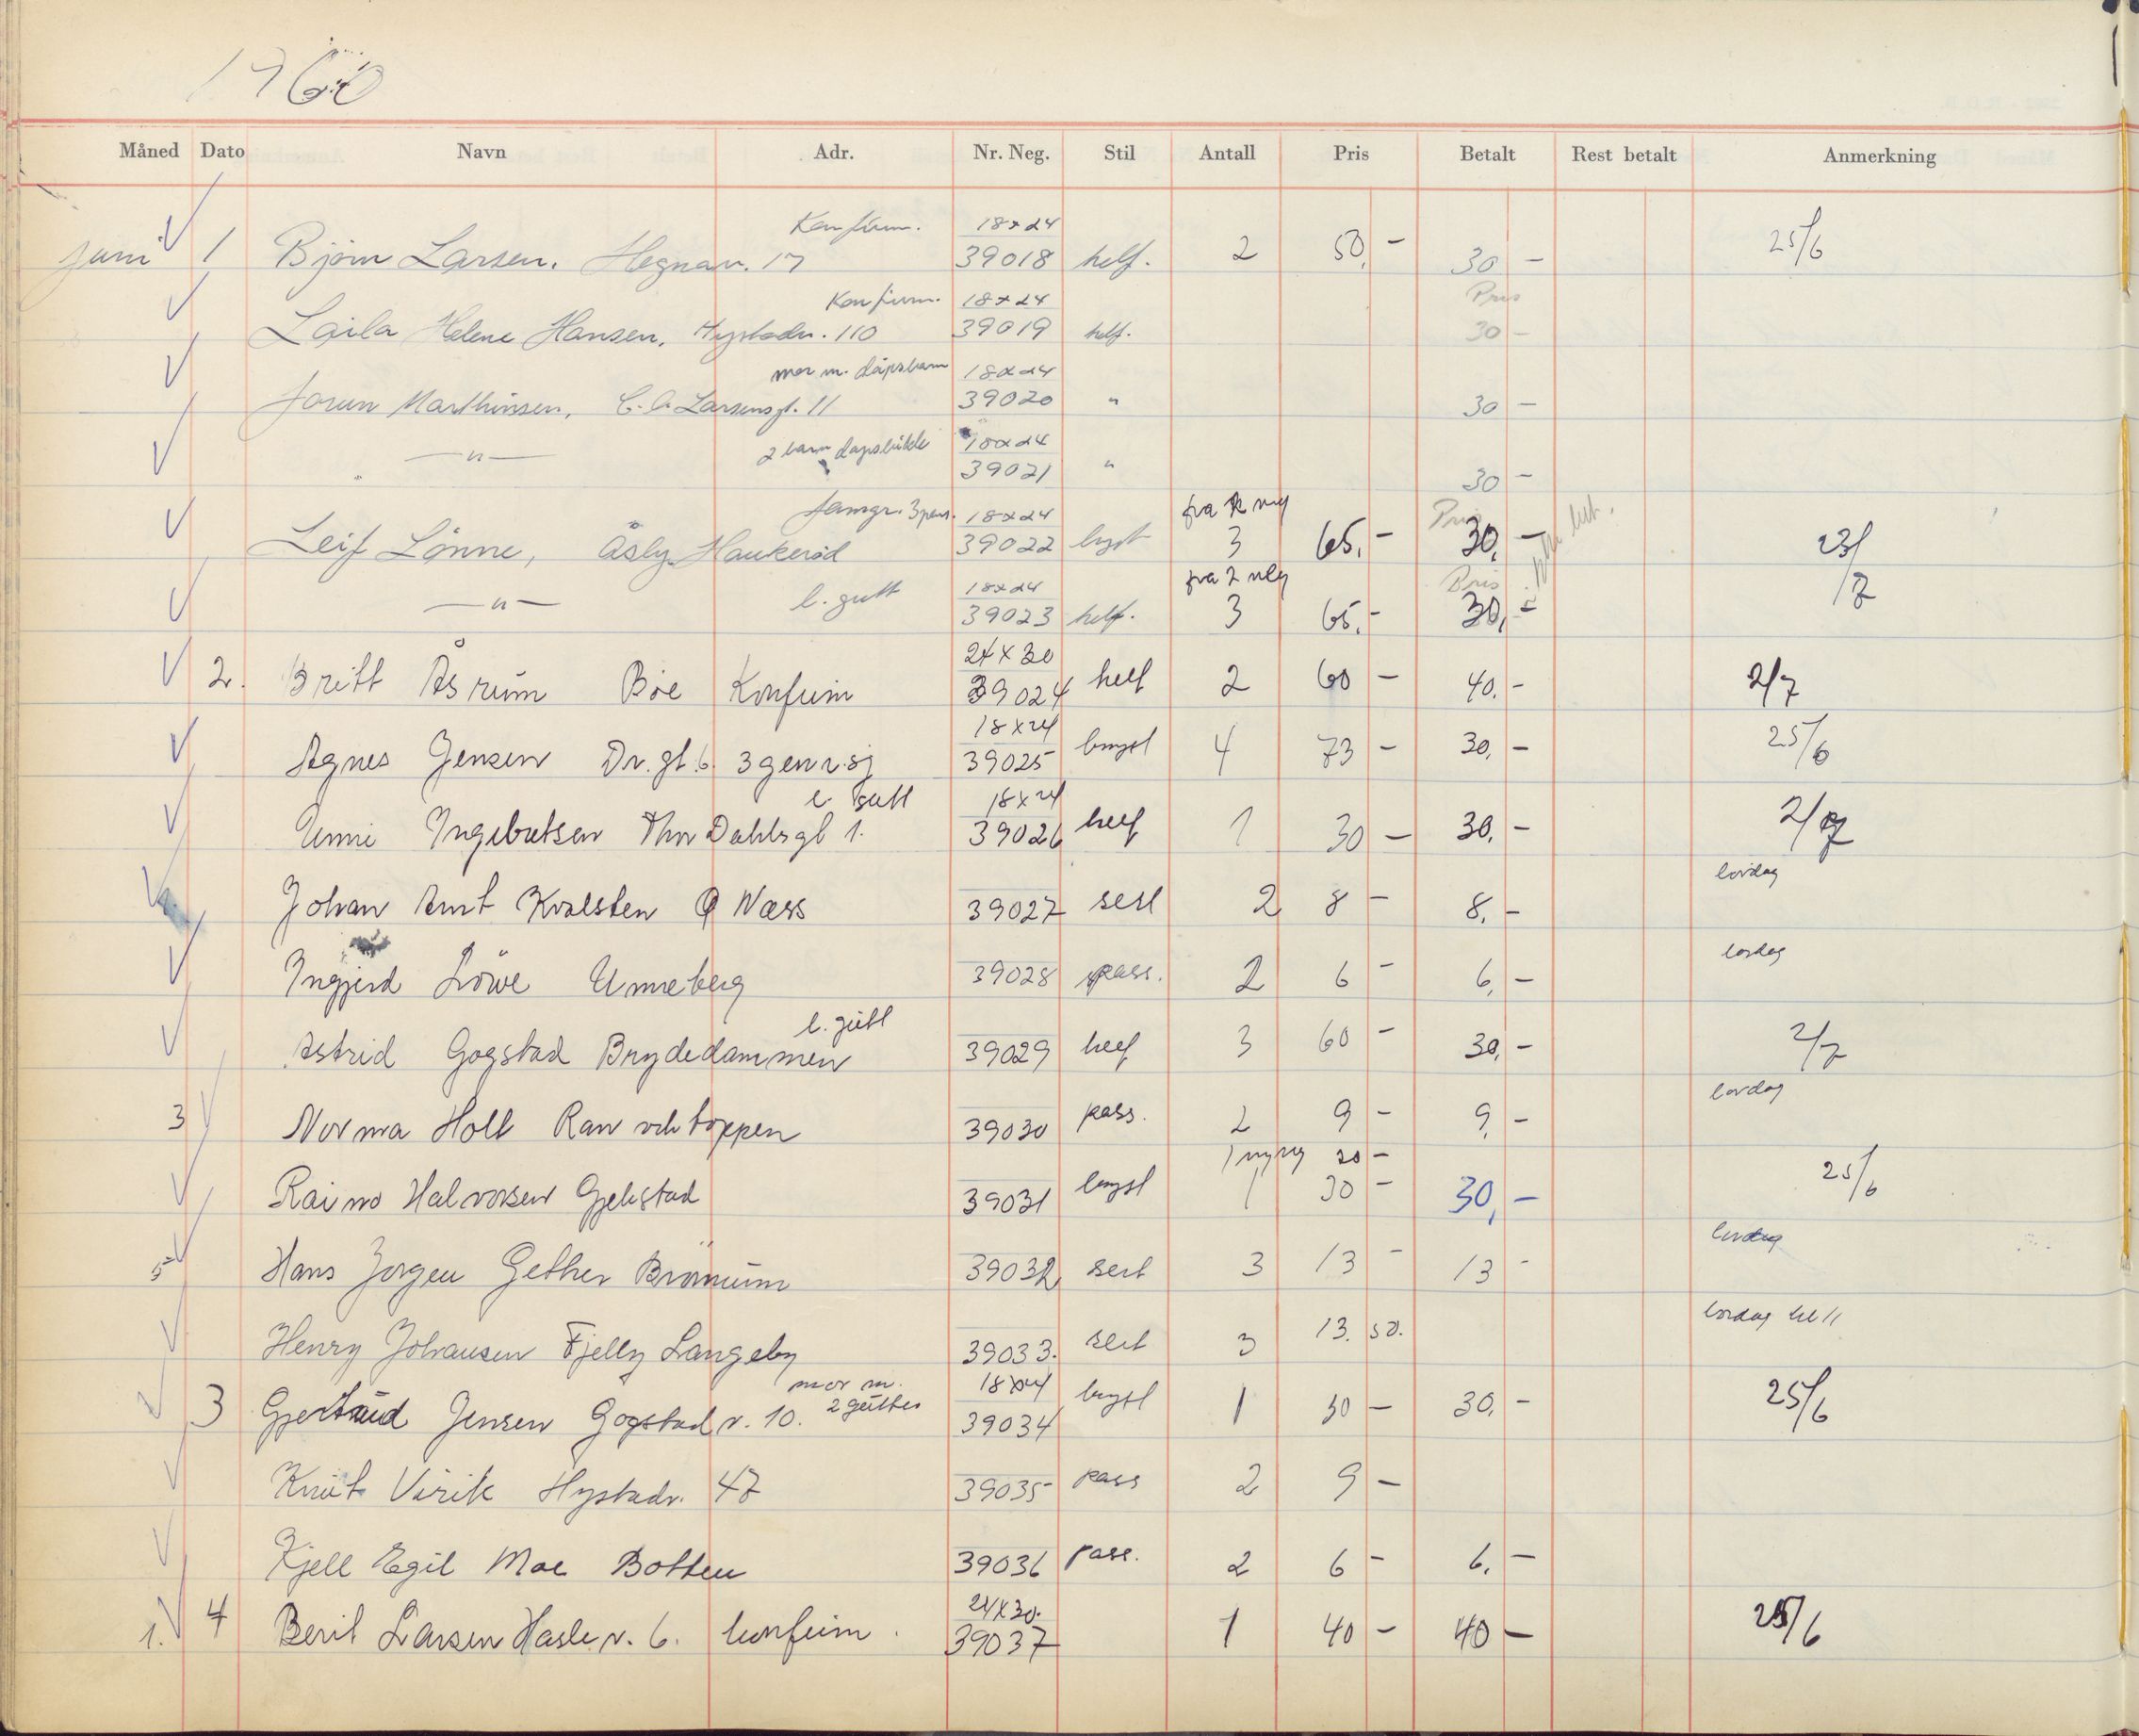 1960
Måned Dato Navn Adr. Nr. Neg. Stil Antall Pris Betalt Rest betalt Anmerkning
Konfirm. 18x24
Juni 1 Bjørn Larsen, Hegnav. 17 39018 helf. 2 50,- 30 - 25/6
Konfirm. 18x24 Pris
Laila Helene Hansen, Hystadv. 110 39019 helf. 30 -
mor m. dåpsbarn 18x24
Jorun Marthinsen, C. A. Larsensgt. 11 39020 " 30 -
2 barn dåpsbilde 18x24
—"— 39021 " 30 -
famgr. 3 pers. 18x24 fra 2 neg Pris
Leif Lønne, Åsly Haukerød 39022 bryst 3 65,- 30,- 23/7
l. gutt 18x24 fra 2 neg Pris
—"— 39023 helf. 3 65,- 30,-
24x30
2. Britt Åsrum Bøe Konfirm 39024 helf 2 60 - 40.- 2/7
18x24
Agnes Jensen Dr. gt. 6. 3 gen. 39025 bryst 4 73 - 30,- 25/6
l. gutt 18x24
Unni Ingebretsen Thor Dahlsgt 1. 39026 helf 1 30 - 30,- 2/7
lördag
Johan Arnt Kvalsten Ø Næss 39027 sert 2 8 - 8,-
lördag
Ingjerd Löwe Unneberg 39028 pass. 2 6 - 6,-
l. gutt
Astrid Gogstad Brydedammen 39029 helf 3 60 - 30,- 2/7
lördag
3 Norma Holt Ranvikstoppen 39030 pass. 2 9 - 9,-
20 -
Raimo Halvorsen Gjekstad 39031 bryst 1 30 - 30,- 25/6
lördag
5 Hans Jørgen Gether Bromum 39032 sert 3 13 - 13 -
lördag kl 11
Henry Johansen Fjelly Langeby 39033. sert 3 13. 50.
mor m. 18x24
2 gutter
3 Gjertrud Jensen Gogstad v. 10. 39034 bryst 1 30 - 30,- 25/6
Knut Virik Hystadv. 47 39035 pass 2 9 -
Kjell Egil Moe Botten 39036 pass. 2 6 - 6,-
24x30.
1. 4 Berit Larsen Hasle v. 6. konfirm. 39037 1 40 - 40 - 25/6